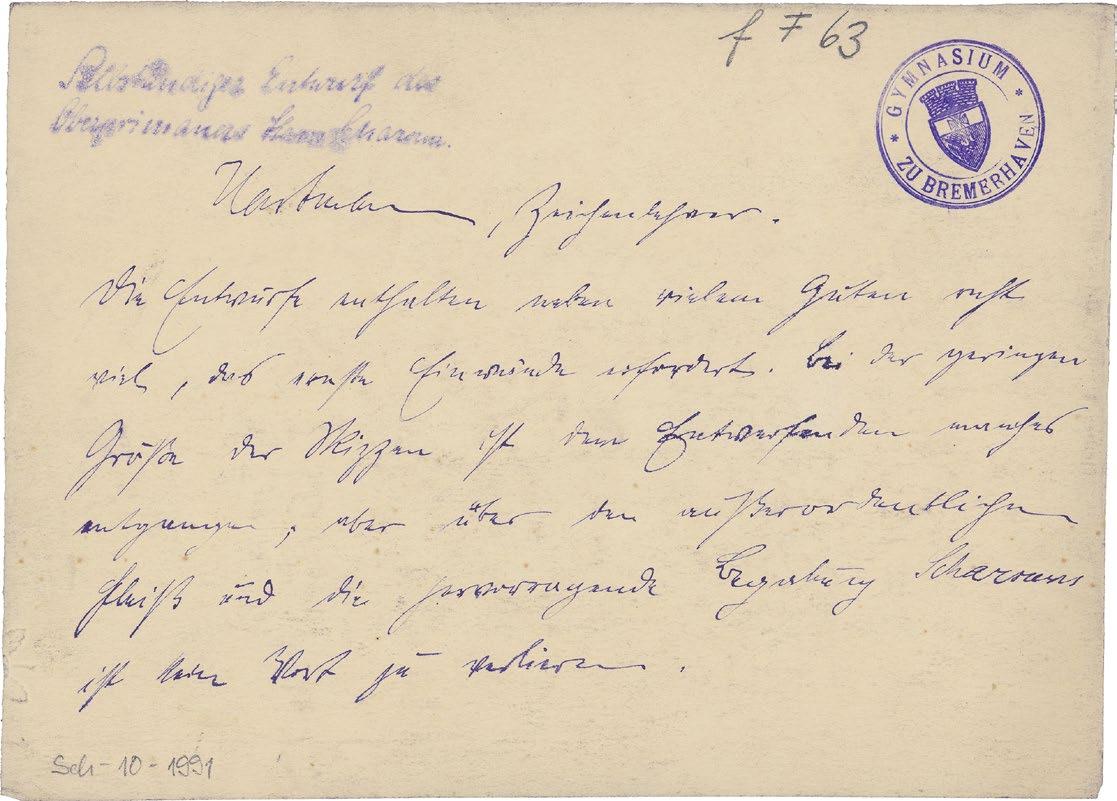 f F 63
GYMNASIUM
ZU BREMERHAVEN
Selbständiger Entwurf des
Oberprimaners Hans Scharoun.
Hartmann, Zeichenlehrer.
Die Entwürfe enthalten neben vielem Guten recht
viel, das ernste Einwände erfordert. Bei der geringen
Größe der Skizzen ist dem Entwerfenden manches
entgangen; aber über den außerordentlichen
Fleiß und die hervorragende Begabung Scharouns
ist kein Wort zu verlieren.
Sch-10-1991